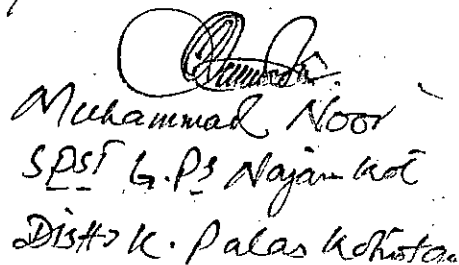 Muhammad Noor
SPST G.PS Najam Kot
Distt: K. Palas Kohistan